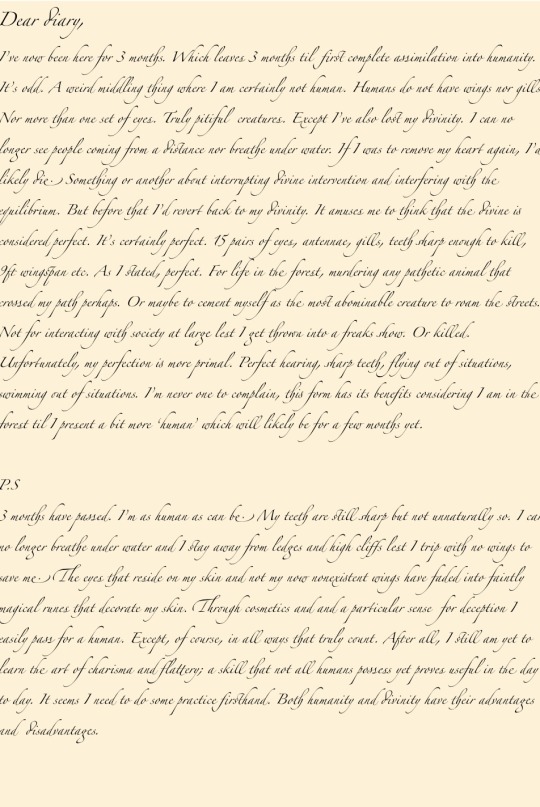 Dear diary,
I've now been here for 3 months. Which leaves 3 months til first complete assimilation into humanity.
It's odd. A weird middling thing where I am certainly not human. Humans do not have wings nor gills
Nor more than one set of eyes. Truly pitiful creatures. Except I've also lost my divinity. I can no
longer see people coming from a distance nor breathe under water. If I was to remove my heart again, I'd
likely die. Something or another about interrupting divine intervention and interfering with the
equilibrium. But before that I'd revert back to my divinity. It amuses me to think that the divine is
considered perfect. It's certainly perfect. 15 pairs of eyes, antennae, gills, teeth sharp enough to kill,
9ft wingspan etc. As I stated, perfect. For life in the forest, murdering any pathetic animal that
crossed my path perhaps. Or maybe to cement myself as the most abominable creature to roam the streets.
Not for interacting with society at large lest I get thrown into a freaks show. Or killed.
Unfortunately, my perfection is more primal. Perfect hearing, sharp teeth, flying out of situations,
swimming out of situations. I'm never one to complain, this form has its benefits considering I am in the
forest til I present a bit more 'human' which will likely be for a few months yet.
P.S
3 months have passed. I'm as human as can be. My teeth are still sharp but not unnaturally so. I can
no longer breathe under water and I stay away from ledges and high cliffs lest I trip with no wings to
save me. The eyes that reside on my skin and not my now nonexistent wings have faded into faintly
magical runes that decorate my skin. Through cosmetics and and a particular sense for deception I
easily pass for a human. Except, of course, in all ways that truly count. After all, I still am yet to
learn the art of charisma and flattery; a skill that not all humans possess yet proves useful in the day
to day. It seems I need to do some practice firsthand. Both humanity and divinity have their advantages
and disadvantages.